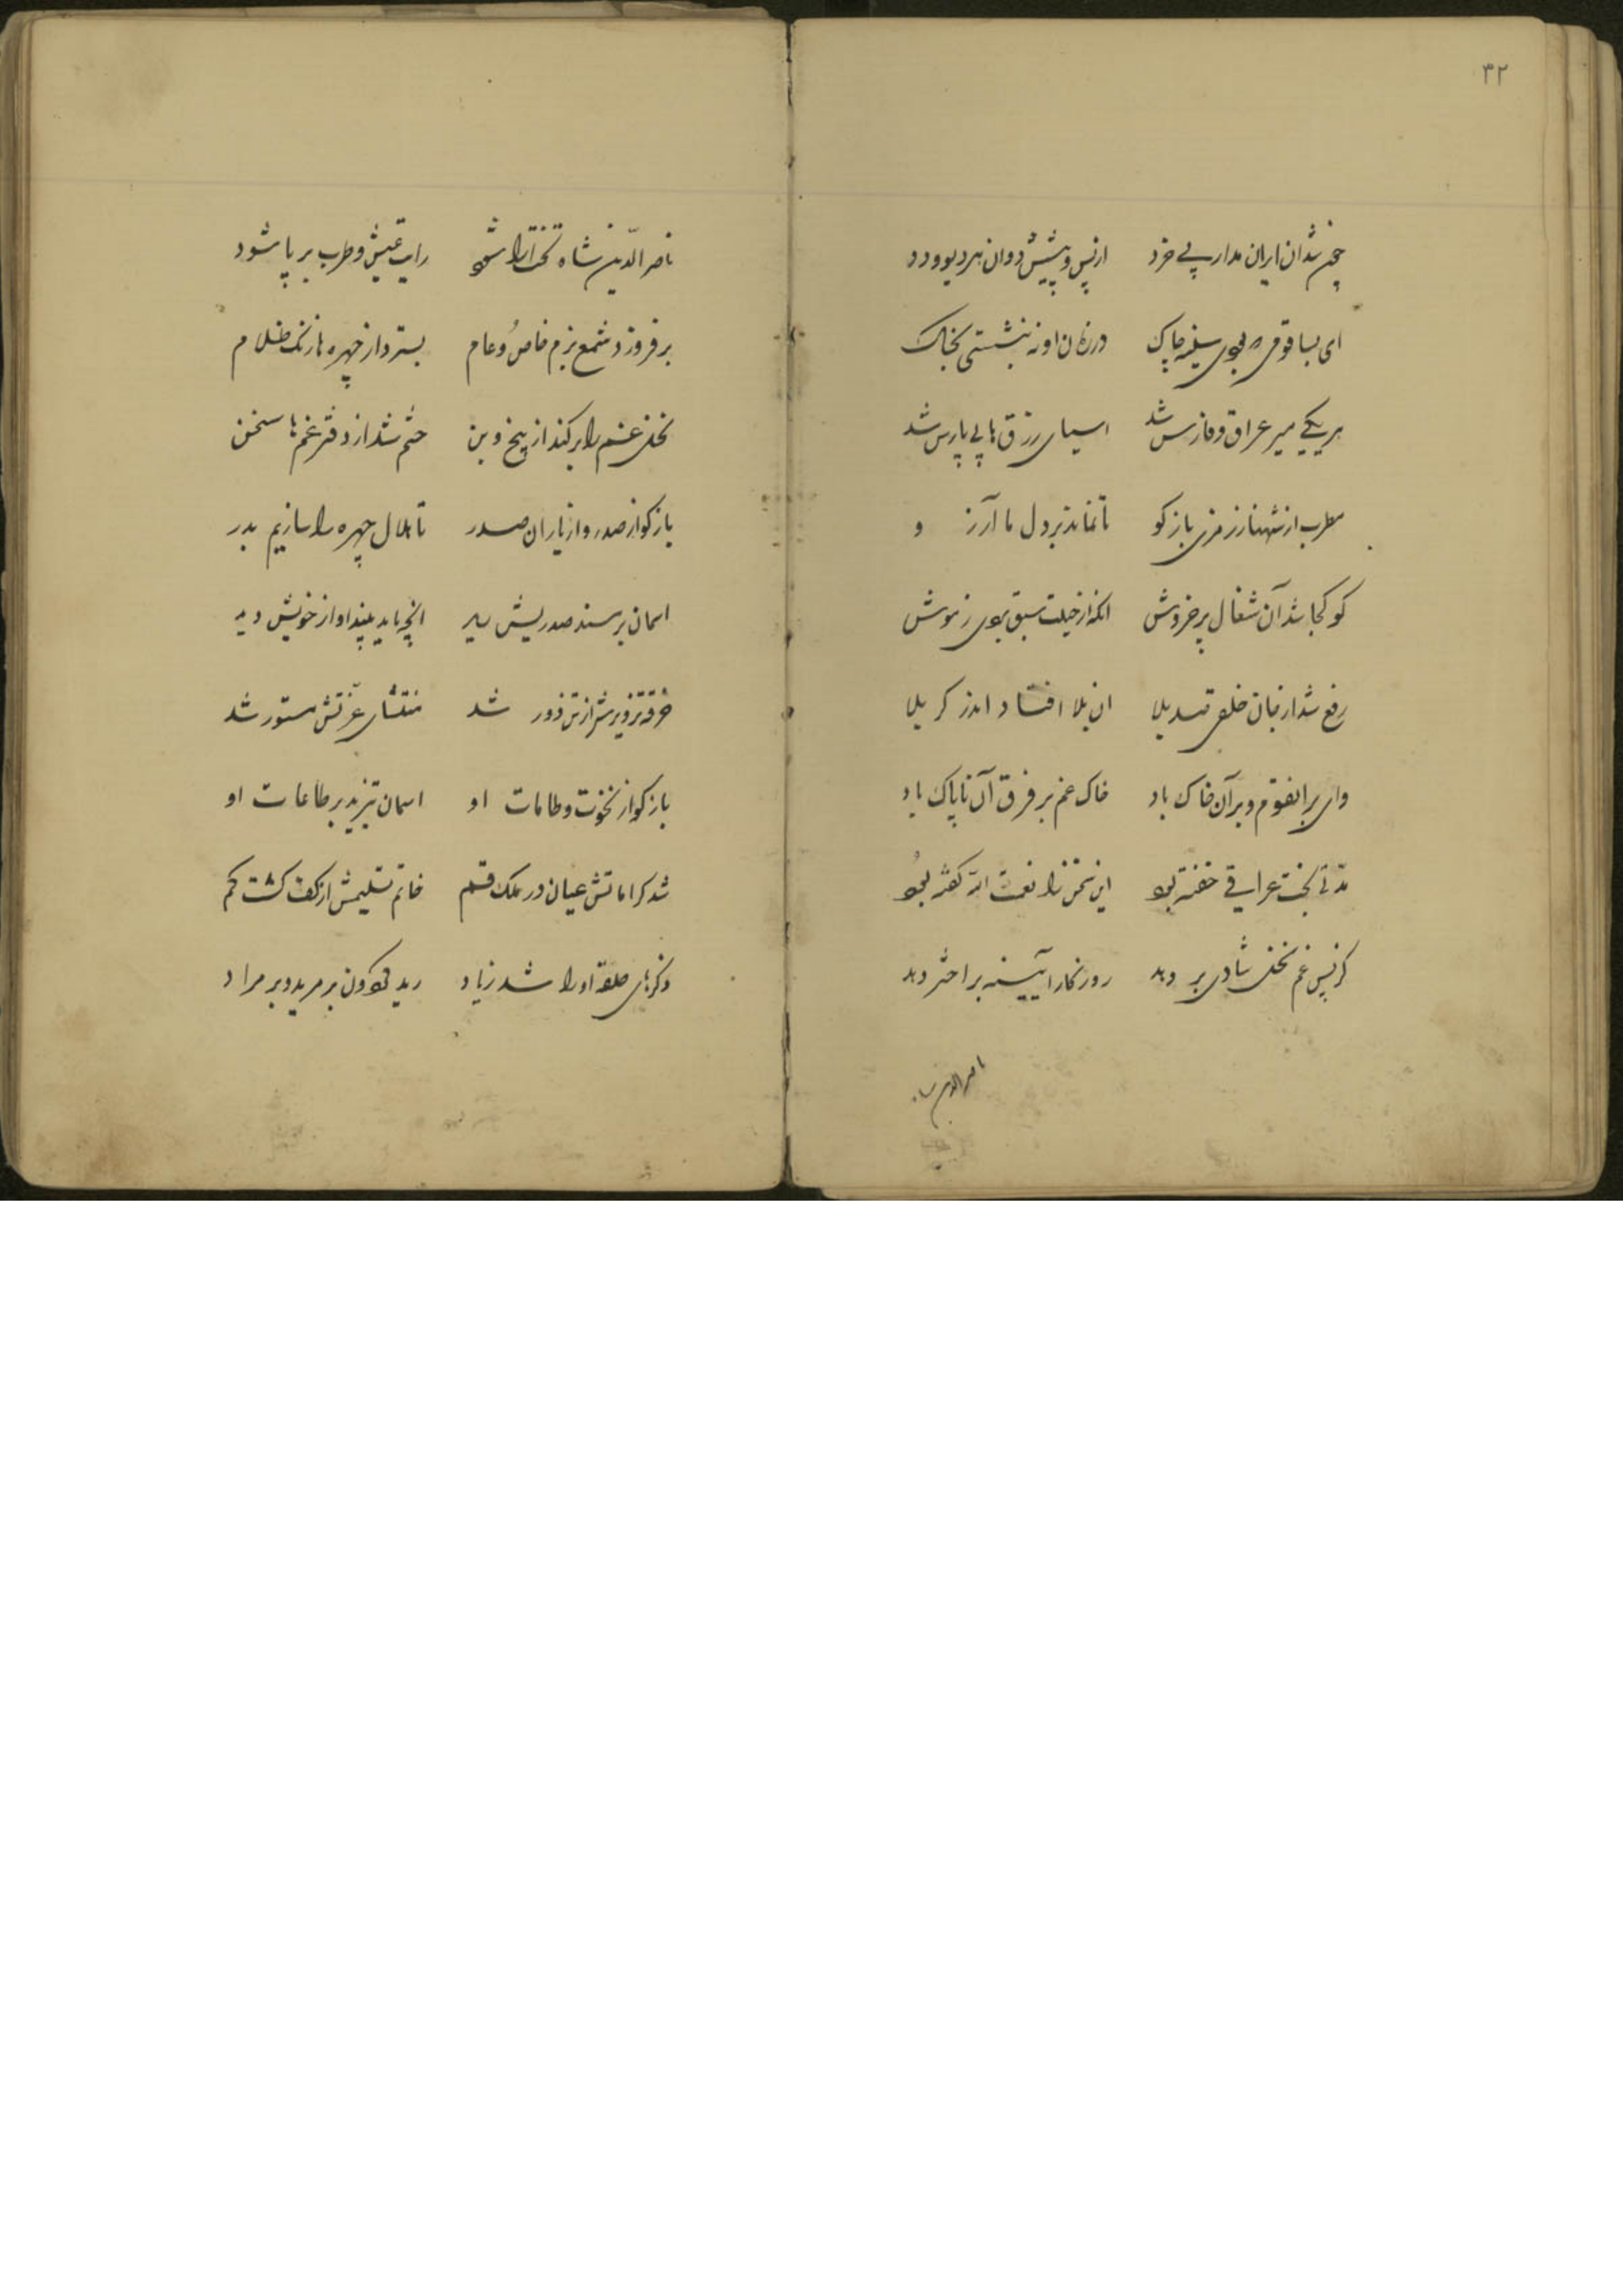 ۳۲
چه شد ان ایران مدار بی خرد از پس و پیشش دوان هر دیو و دد
ای بسا قومی بسینه چاک در زمان او نه بنشستی بخاک
هر یکی میر عراق و فارس شد اسیای رزق ما بی پارس شد
مطرب از شهناز رمزی باز کو تا نماند بر دل ما آرزو
کو کجا شد آن شغال پر خروش انکه از حیلت سبق بردی ز موش
رفع شد از جان خلق ان بلا افتاد اندر کربلا
وای بر انقوم و بر آن خاک باد خاک غم بر فرق آن ناپاک باد
مدتی بخت عراقی خفته بود این سخن را نعمت الله گفته بود
کز پس غم نخل شادی بر دهد روزگار آیینه را دهد
ناصر الدین شاه
ناصر الدین شاه تخت ارا شود رایت عیش و طرب بر پا شود
بر فروزد شمع بزم خاص و عام بسترد از چهره ها زنک ظلام
نخل غم را بر کند از بیخ و بن ختم شد از دفتر غم ها سخن
باز کو از صدر و از یاران صدر تا هلال چهره را سازیم بدر
اسمان بر مسند صدریش رید انچه باید بیند او از خویش دید
خرقه تزویرش از تن دور شد منتشای عزتش مستور شد
باز کو از نخوت و طامات او اسمان تیزید بر طاعات او
شد کراماتش عیان در ملک قم خاتم تسلیمش از کف کشت کم
ذکرهای حلقه او را شد زیاد رید بر مرید و بر مراد